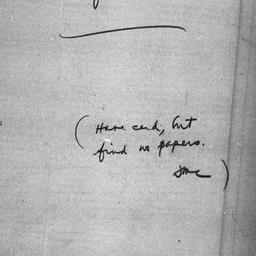 (Have card, but
find no papers.
JMC)